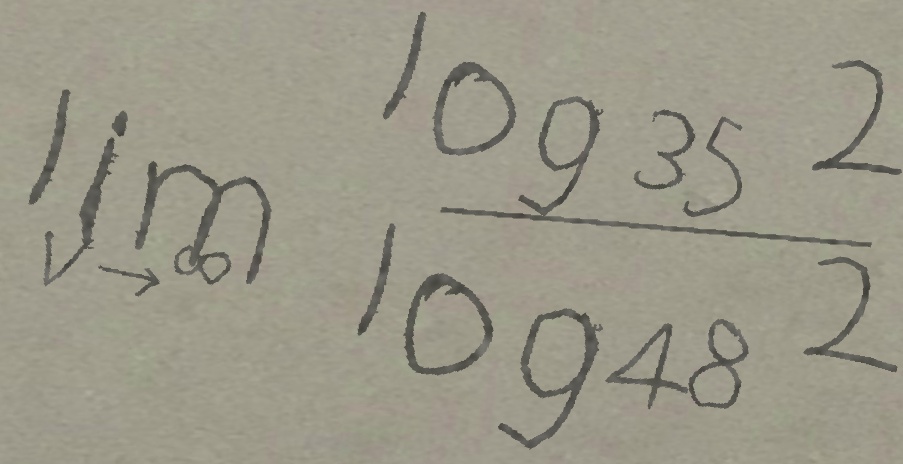 \lim_{v \to \infty} \frac{\log_{35} 2}{\log_{48} 2}